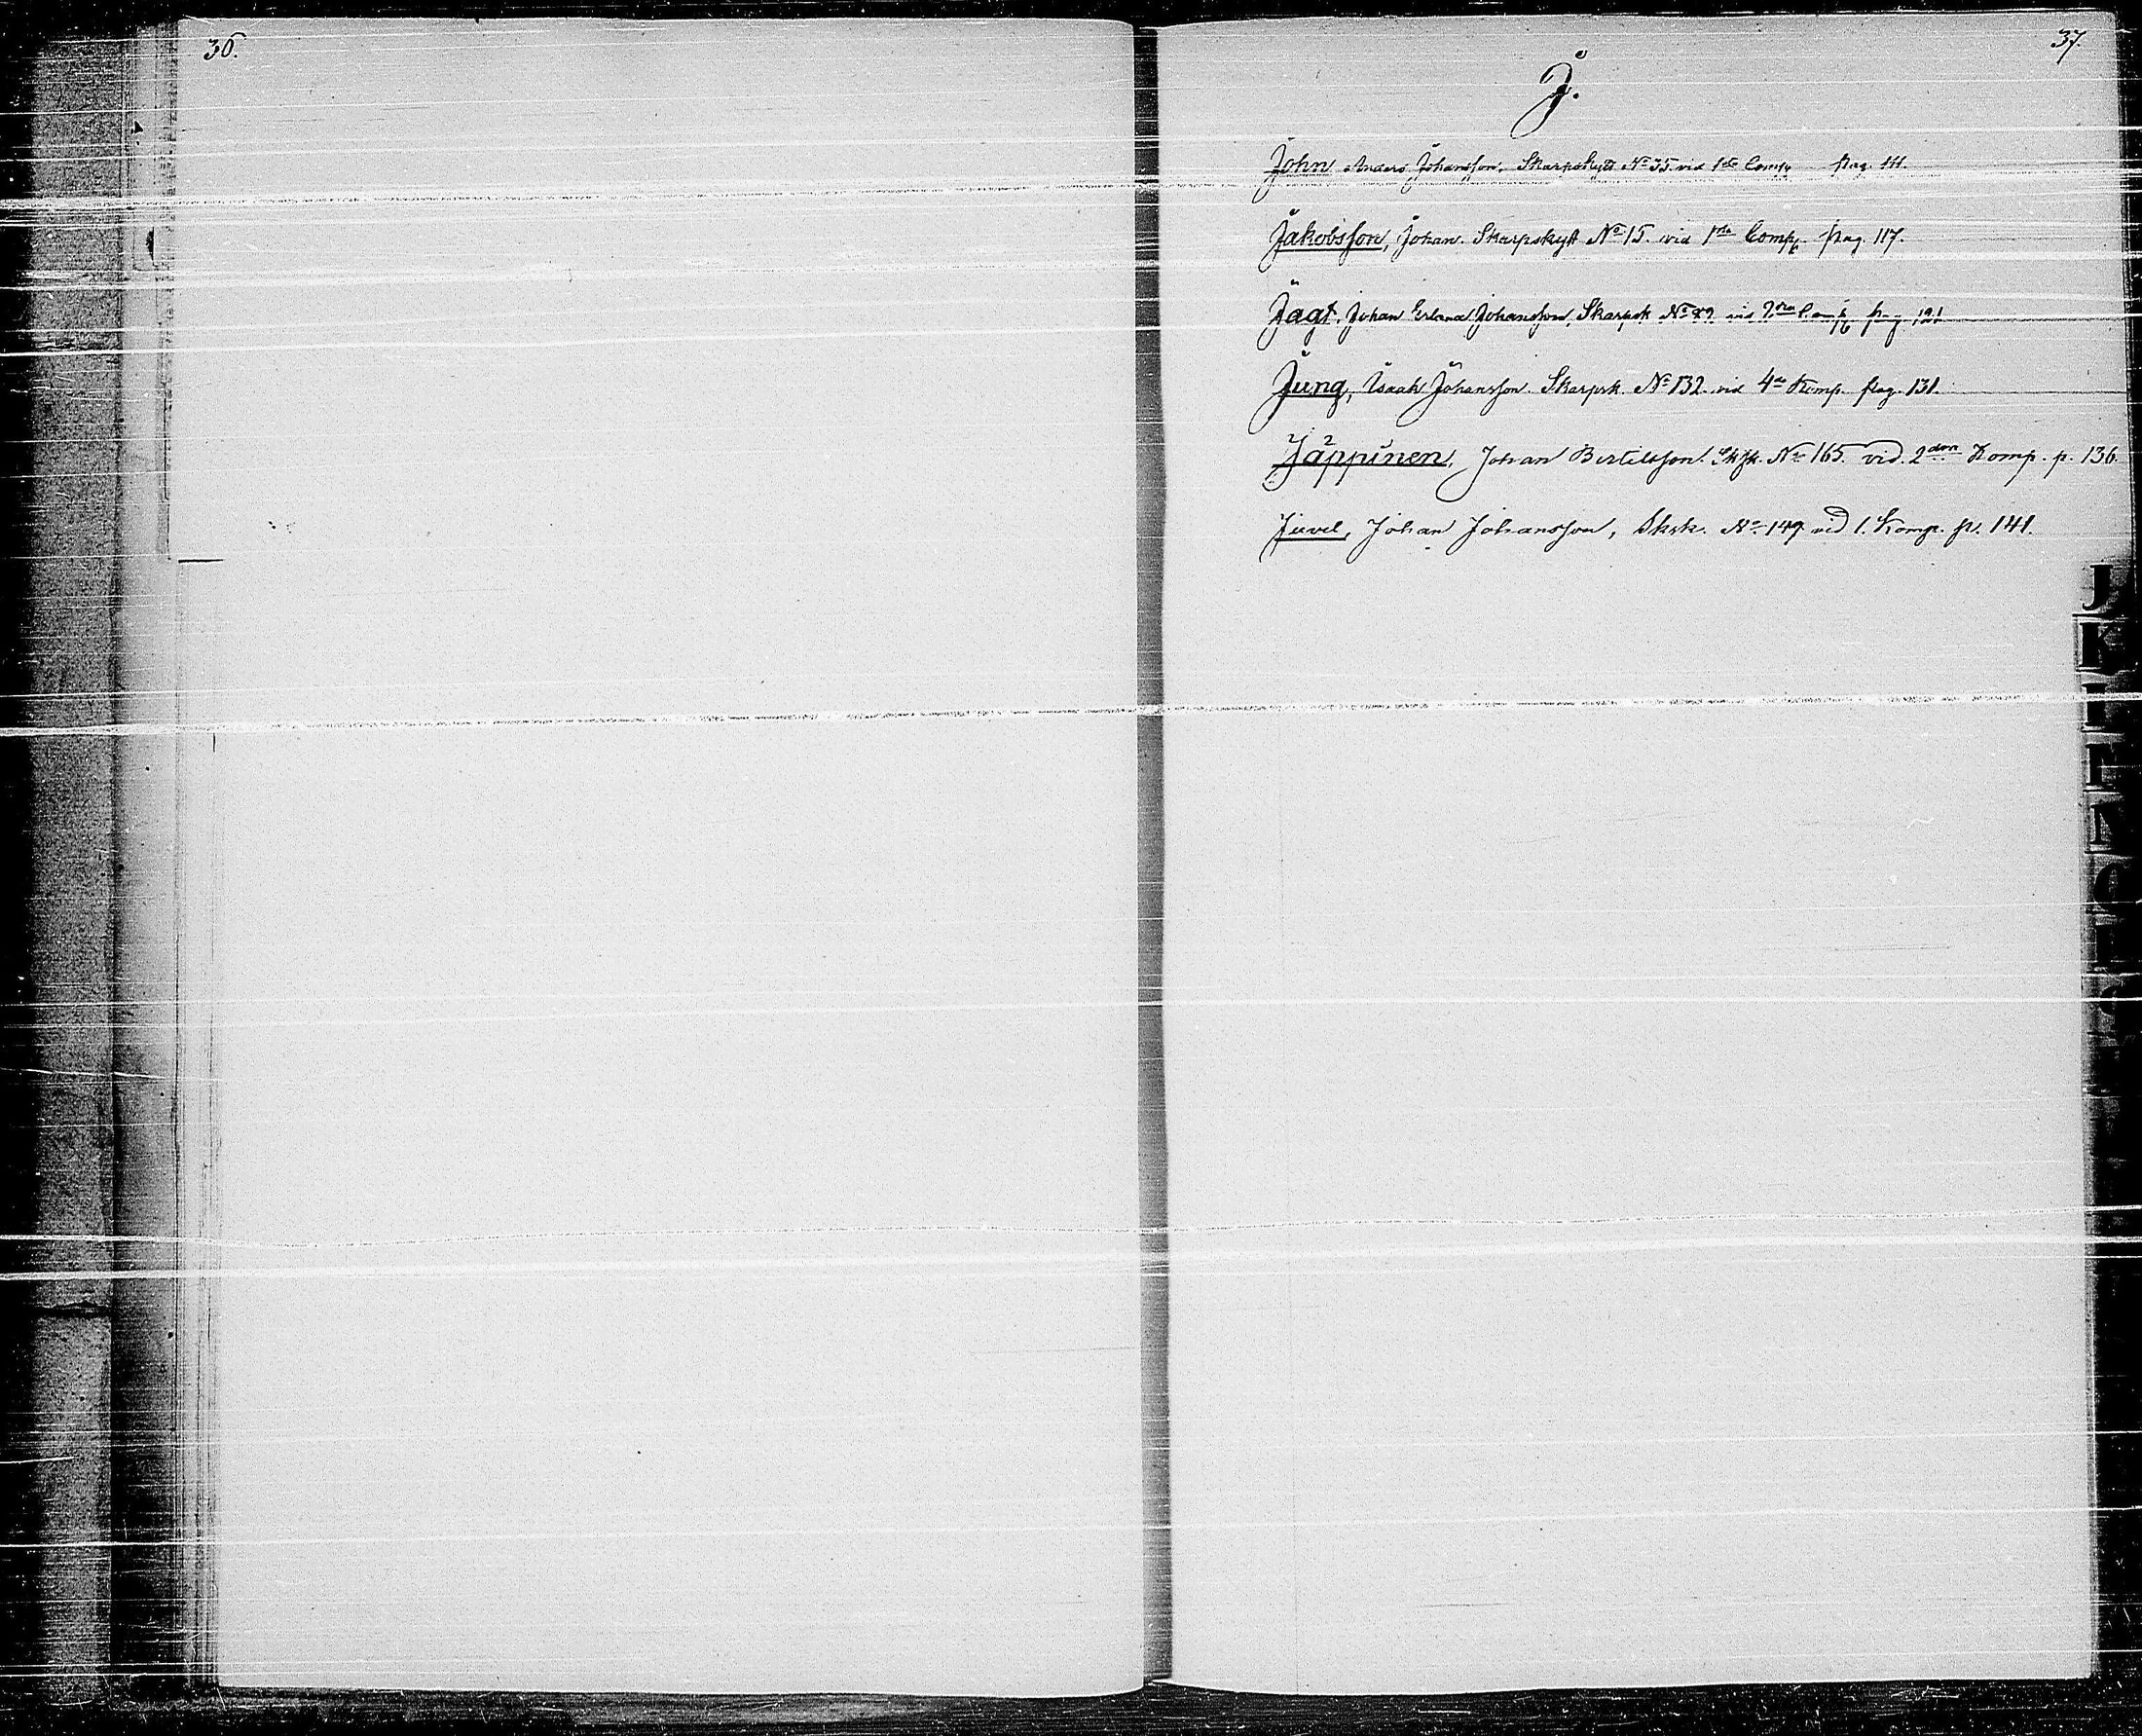 36.
37.
J.
John Anders Johansson, Skarpskytt No 35. vid 1sta Comp pag. 111.
Jakobsson, Johan. Skarpskytt No 15. vid 1sta Comp. pag. 117.
Jagt, Johan Erland Johansson, Skarpsk No 49 vid 2dra Comp pag 121
Jung, Isaak Johansson. Skarpsk. No 132. vid 4de Komp. pag. 131.
Jäppinen, Johan Bertilsson. No 165. vid. 2dra Komp. p. 136.
Juvel, Johan Johansson, Sksk. No 149 vid 1. Komp. p. 141.
J
K